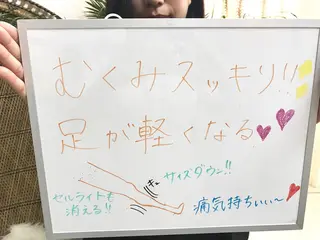 むくみスッキリ!!
足が軽くなる
サイズダウン!!
ギュ
セルライトも
消える!!
痛気持ちいぃ〜